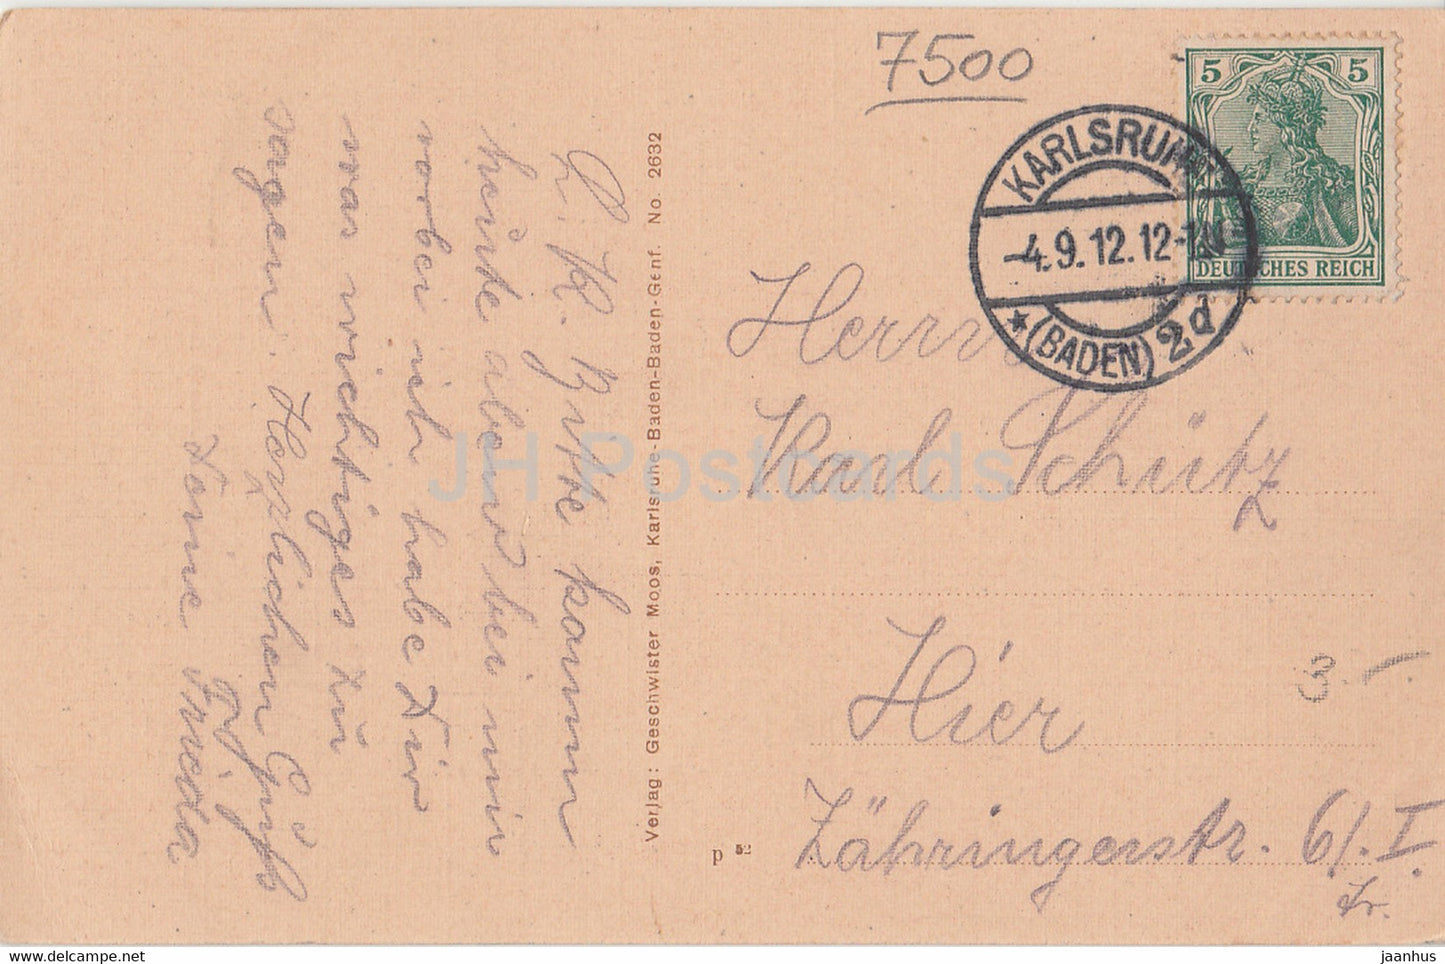 7500
5 5
DEUTSCHES REICH
KARLSRUHE
-4.9.12.12-1
★ (BADEN) 2d
Herrn
Karl Schütz
Hier
Zähringerstr. 61. I
Tr.
3.-
L. K. Bitte komm
heute abend bei mir
vorbei ich habe Dir
was wichtiges zu
sagen. Herzlichen Gruß
Deine Frieda
Verlag: Geschwister Moos, Karlsruhe-Baden-Baden-Genf. No. 2632
p 52
JH Postcards
jaanhus